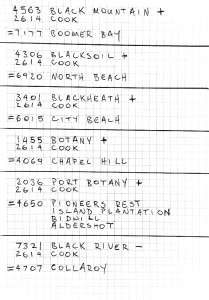 4563 BLACK MOUNTAIN +
2614 COOK
=7177 BOOMER BAY
4306 BLACKSOIL +
2614 COOK
=6920 NORTH BEACH
3401 BLACKHEATH +
2614 COOK
=6015 CITY BEACH
1455 BOTANY +
2614 COOK
=4069 CHAPEL HILL
2036 PORT BOTANY +
2614 COOK
=4650 PIONEERS REST
ISLAND PLANTATION
BIDWILL
ALDERSHOT
7321 BLACK RIVER -
2614 COOK
=4707 COLLAROY